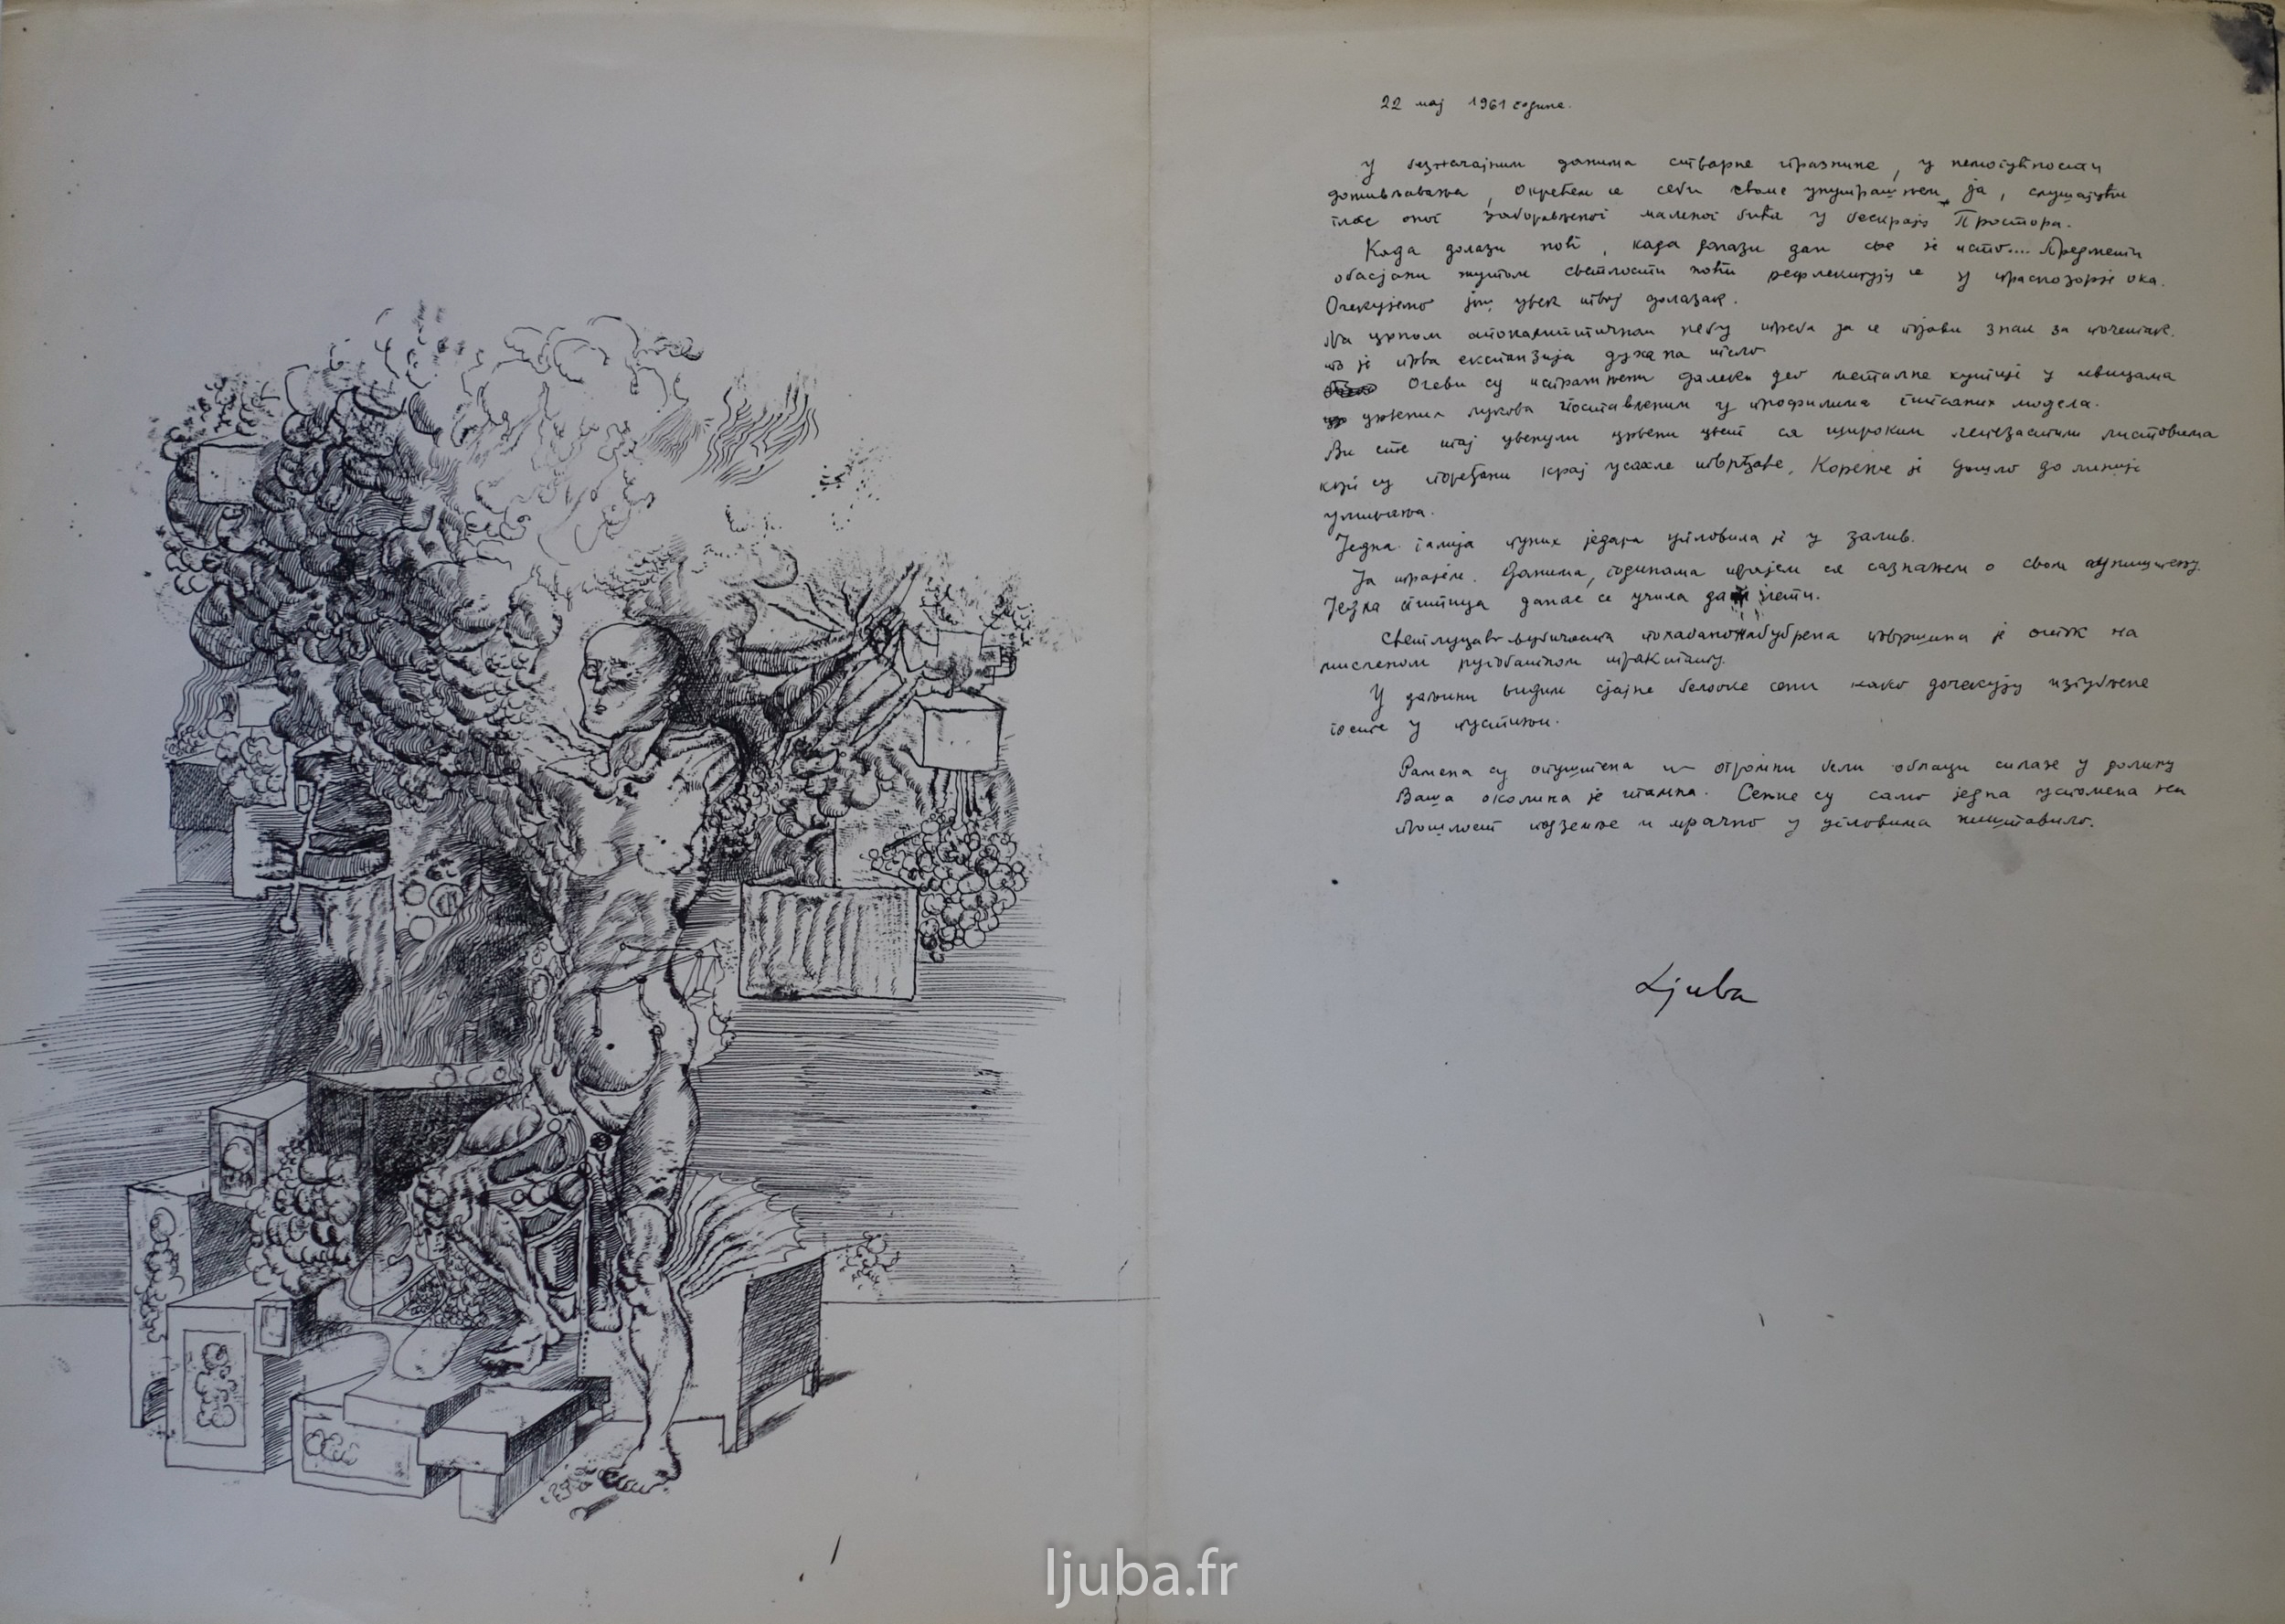 22 мај 1961 године.
У безначајним данима стварне празнине, у немогућности
доживљавања, окрећем се себи своме унутрашњем ја, слушајући
глас оног заборављеног маленог бића у бескрају Простора.
Када долази ноћ, када долази дан све је исто.... Предмети
обасјани жутом светлости ноћи рефлектују се у праскозорје ока.
Очекујемо још увек твој долазак.
На црном апокалиптичном небу треба да се појави знак за почетак.
то је прва експанзија духа на тело
Очеви су истраж­ени далеко део у
црвених лукова постављеним у профилима модела.
Ви сте тај увенули црвени цвет са широким листовима
који су поређани крај усахле тврђаве, Корење је дошло до линије
умирања.
Једна галија пуних једара упловила је у залив.
Ја трајем. Данима, годинама трајем са сазнањем о свом
Једна птица данас се учила да лети.
набубрела површина је на
У даљини видим сјајне беле како дочекују изгубљене
госте у пустињи.
Рамена су опуштена и огромни бели облаци силазе у долину
Ваша околина је тамна. Сенке су само једна успомена на
прошлост подземне и мрачно у ништавило.
Ljuba
ljuba.fr